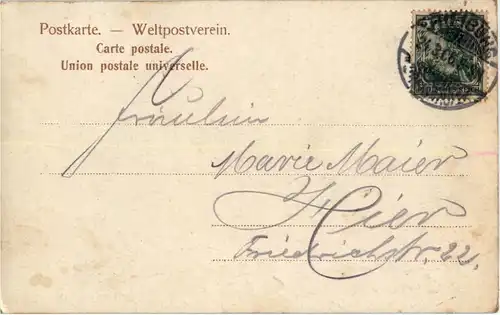 Postkarte. — Weltpostverein.
Carte postale.
Union postale universelle.
Fräulein
Marie Maier
Hier
Friedrichstr. 22.